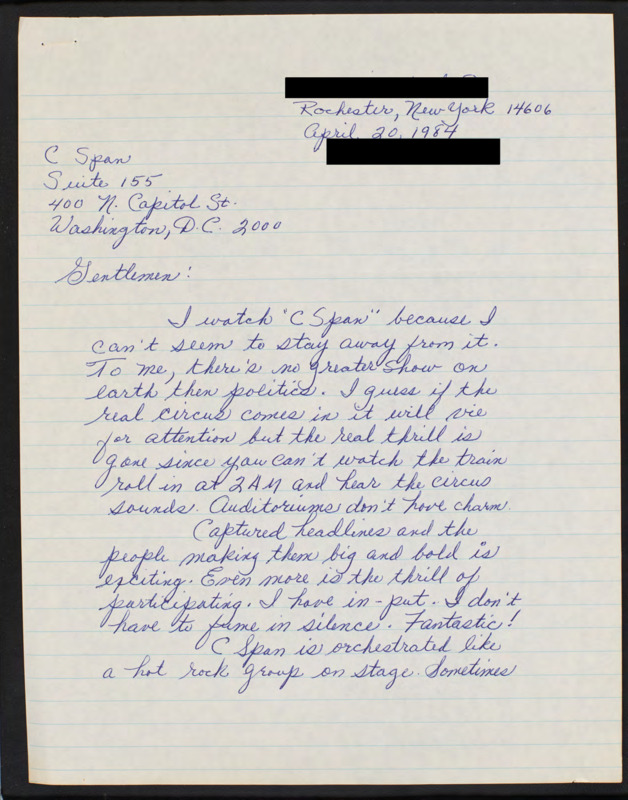 Rochester, New York 14606
April 20, 1984
C Span
Suite 155
400 N. Capitol St.
Washington, D.C. 2000
Gentlemen:
I watch "C Span" because I
can't seem to stay away from it.
To me, there's no greater show on
earth then politics. I guess if the
real circus comes in it will vie
for attention but the real thrill is
gone since you can't watch the train
roll in at 2AM and hear the circus
sounds. Auditoriums don't have charm.
Captured headlines and the
people making them big and bold is
exciting. Even more is the thrill of
participating. I have in-put. I don't
have to fume in silence. Fantastic!
C Span is orchestrated like
a hot rock group on stage. Sometimes